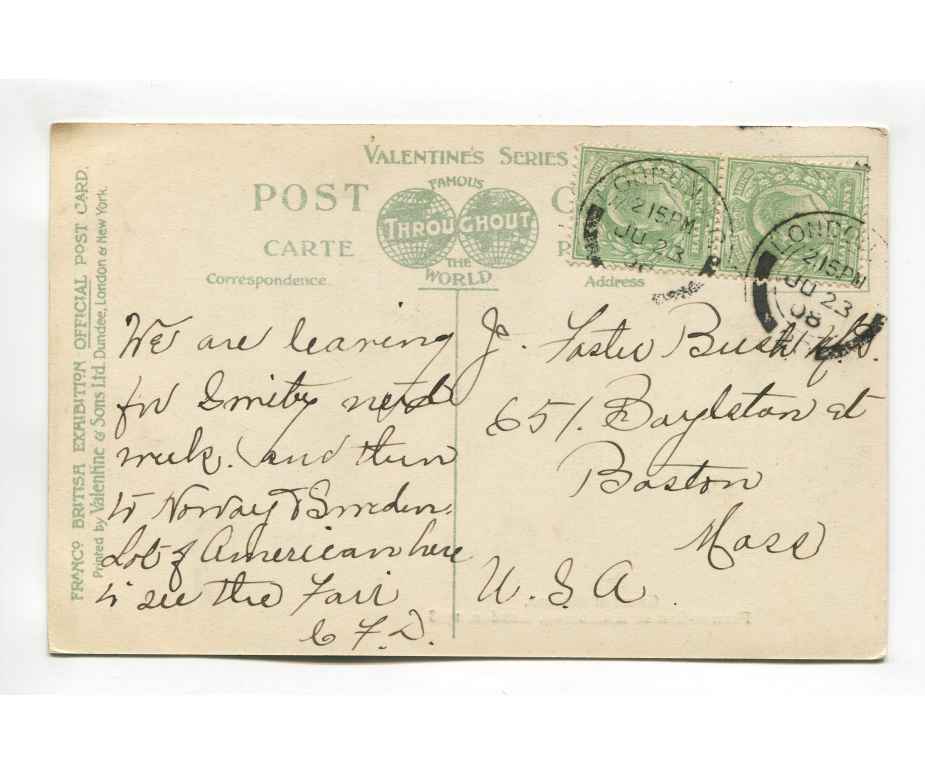 FRANCO BRITISH EXHIBITION OFFICIAL POST CARD.
Printed by Valentine & Sons Ltd. Dundee, London & New York.
VALENTINE'S SERIES
FAMOUS
POST
THROUGHOUT
CARTE
THE
WORLD
Correspondence
Address
LONDON
2.15PM
JU 23
LONDON
2.15PM
JU 23
08
We are leaving
for next
week. and then
to Norway & Sweden.
Lot of American here
to see the Fair
C F D.
J. Foster Bush M.D.
651. Boylston st
Boston
Mass
U. S. A.